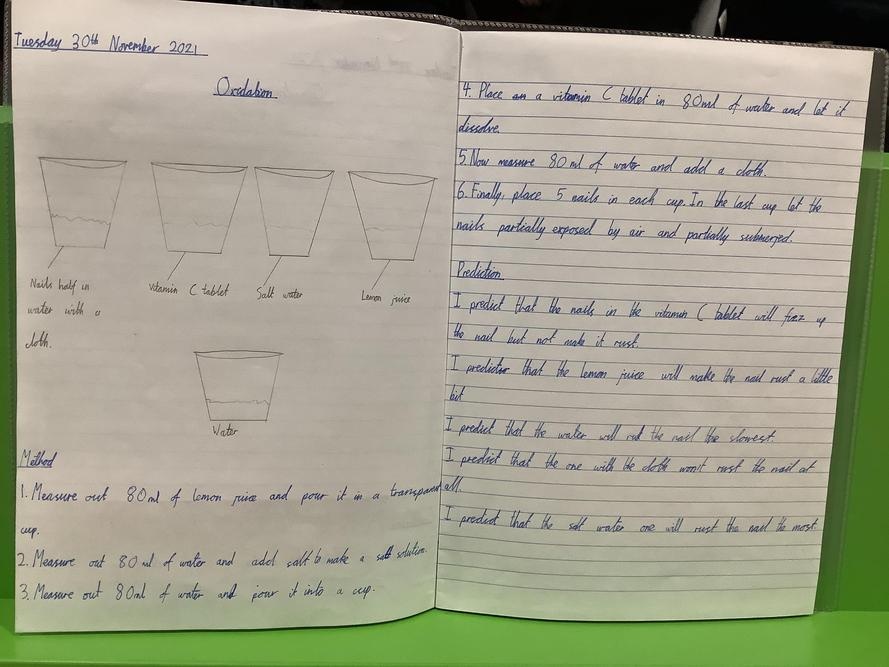 Tuesday 30th November 2021
Oxidation
Nails half in
water with a
cloth.
Vitamin C tablet
Salt water
Lemon juice
Water
Method
1. Measure out 80ml of lemon juice and pour it in a transparent
cup.
2. Measure out 80ml of water and add salt to make a salt solution.
3. Measure out 80ml of water and pour it into a cup.
4. Place a vitamin C tablet in 80ml of water and let it
dissolve.
5. Now measure 80ml of water and add a cloth.
6. Finally, place 5 nails in each cup. In the last cup let the
nails partially exposed by air and partially submerged.
Prediction
I predict that the nails in the vitamin C tablet will fizz up
the nail but not make it rust.
I predict that the lemon juice will make the nail rust a little
bit
I predict that the water will rust the nail the slowest.
I predict that the one with the cloth won't rust the nail at
all.
I predict that the salt water one will rust the nail the most.